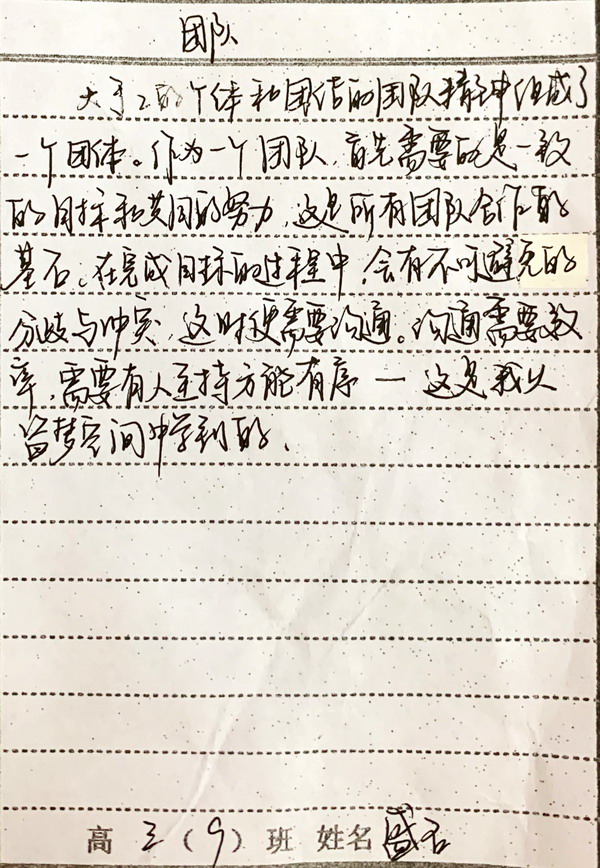 团队
大于2的个体和团结的团队精神组成了
一个团体。作为一个团队,首先需要的是一致
的目标和共同的努力,这是所有团队合作的
基石。在完成目标的过程中,会有不可避免的
分歧与冲突,这时便需要沟通。沟通需要效
率,需要有人主持方能有序—这是我从
盗梦空间中学到的.
高三(9)班 姓名